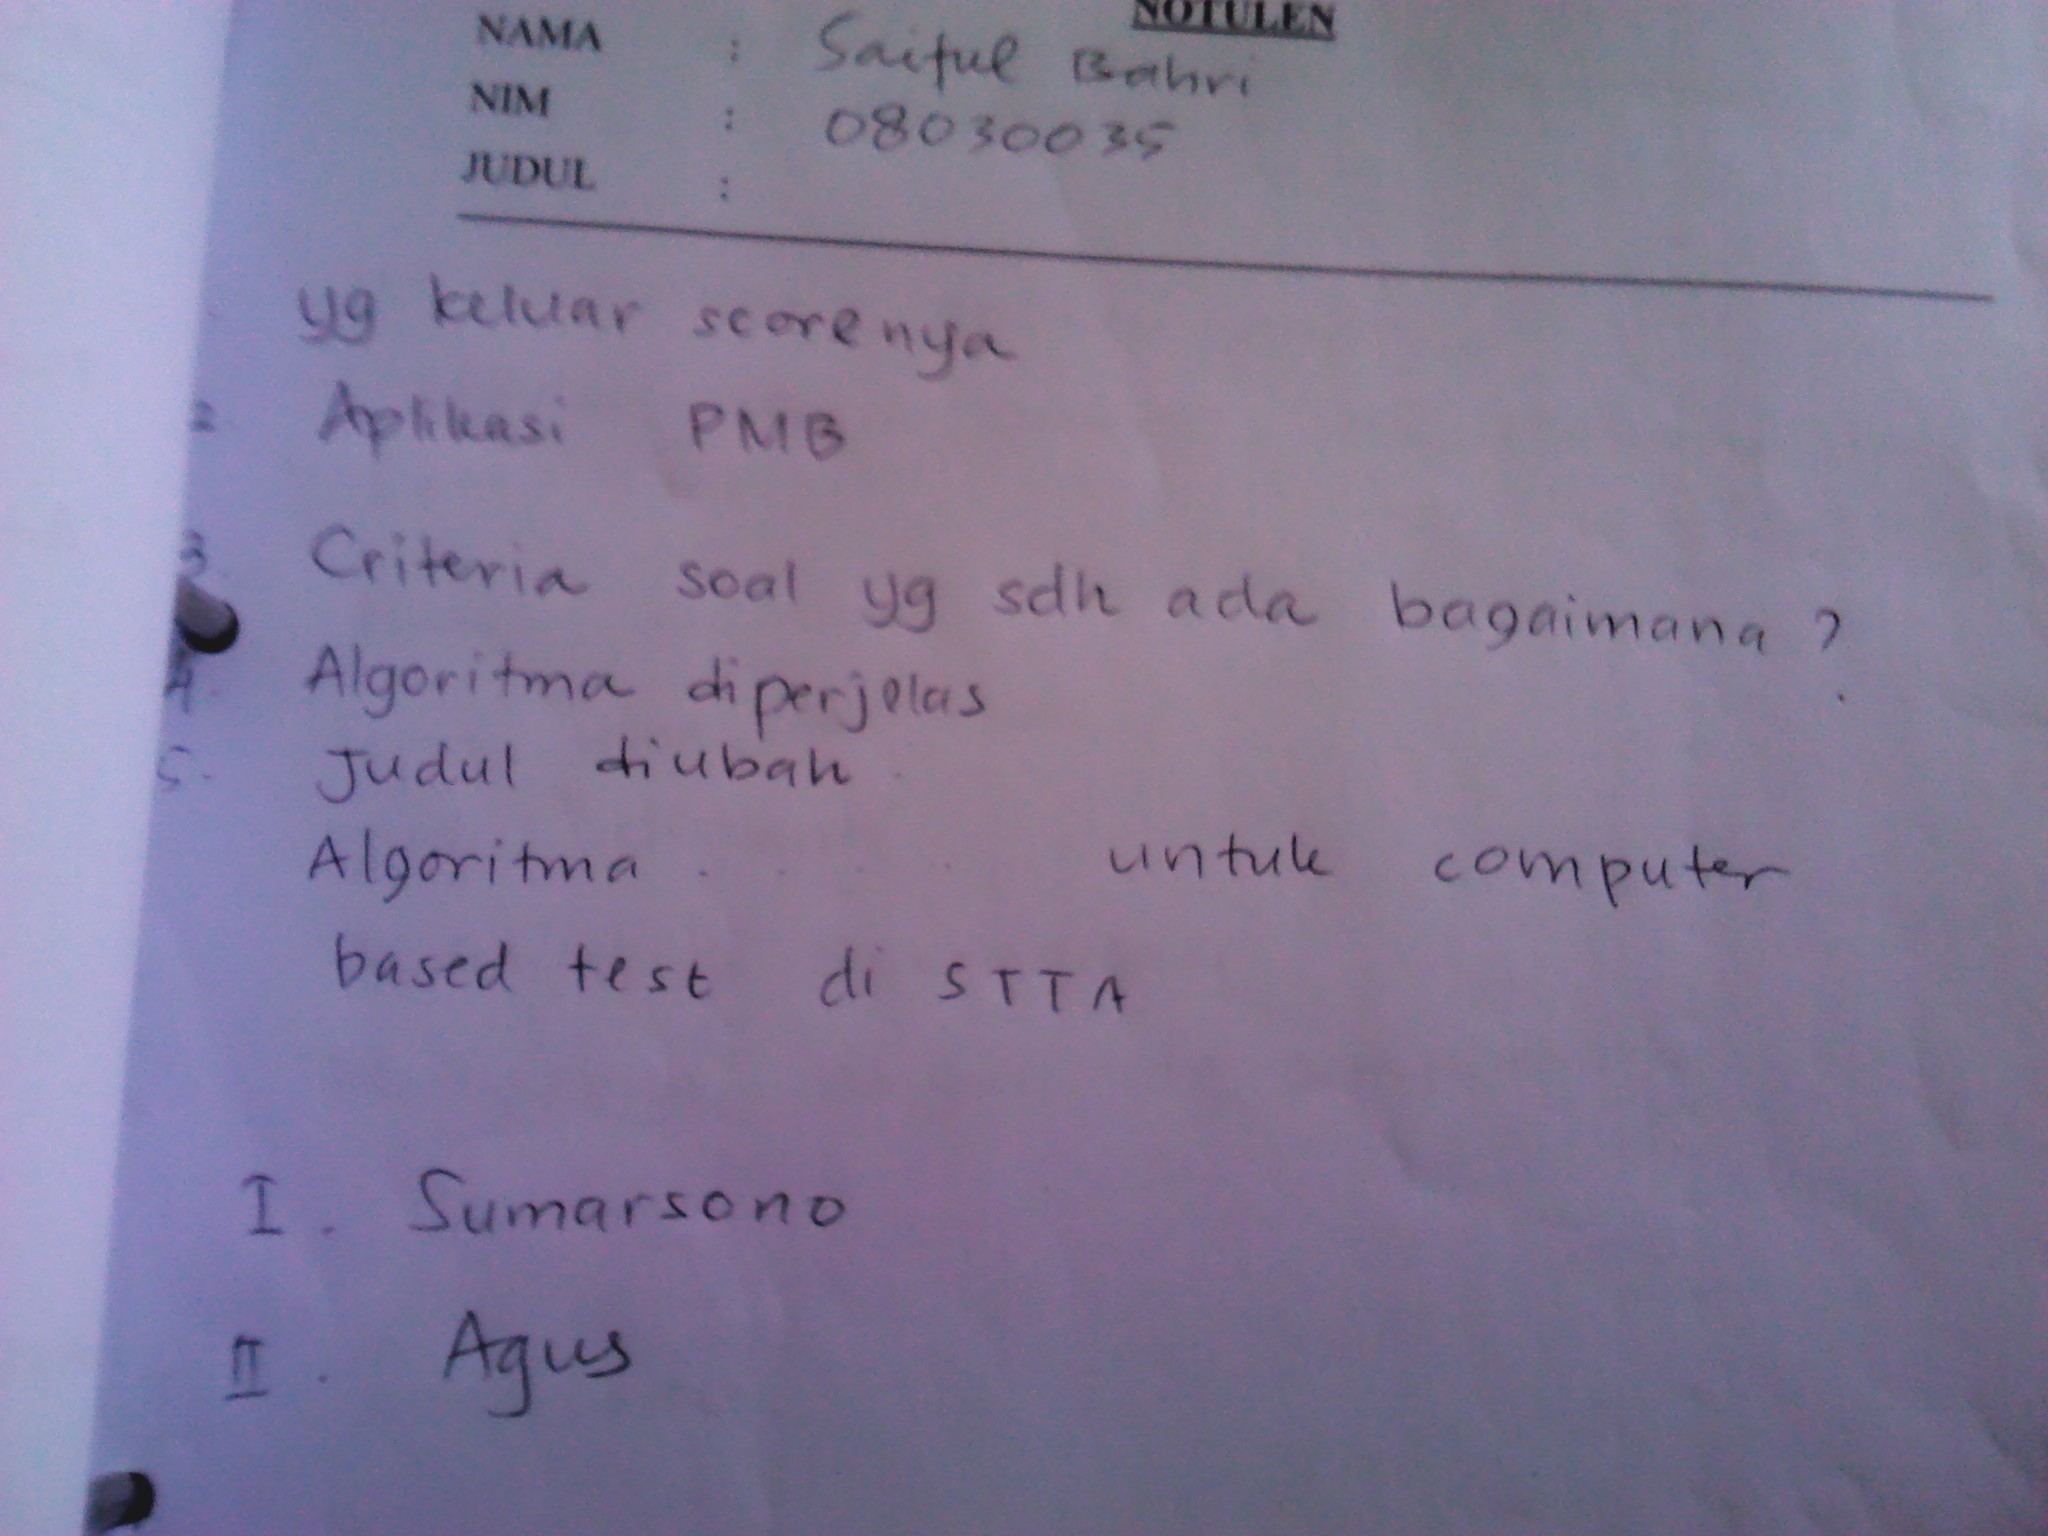 NOTULEN
NAMA : Saiful Bahri
NIM : 08030035
JUDUL :
yg keluar scorenya
2. Aplikasi PMB
3. Criteria soal yg sdh ada bagaimana ?
4. Algoritma diperjelas
5. Judul diubah
Algoritma . . . . untuk computer
based test di STTA
I. Sumarsono
II. Agus